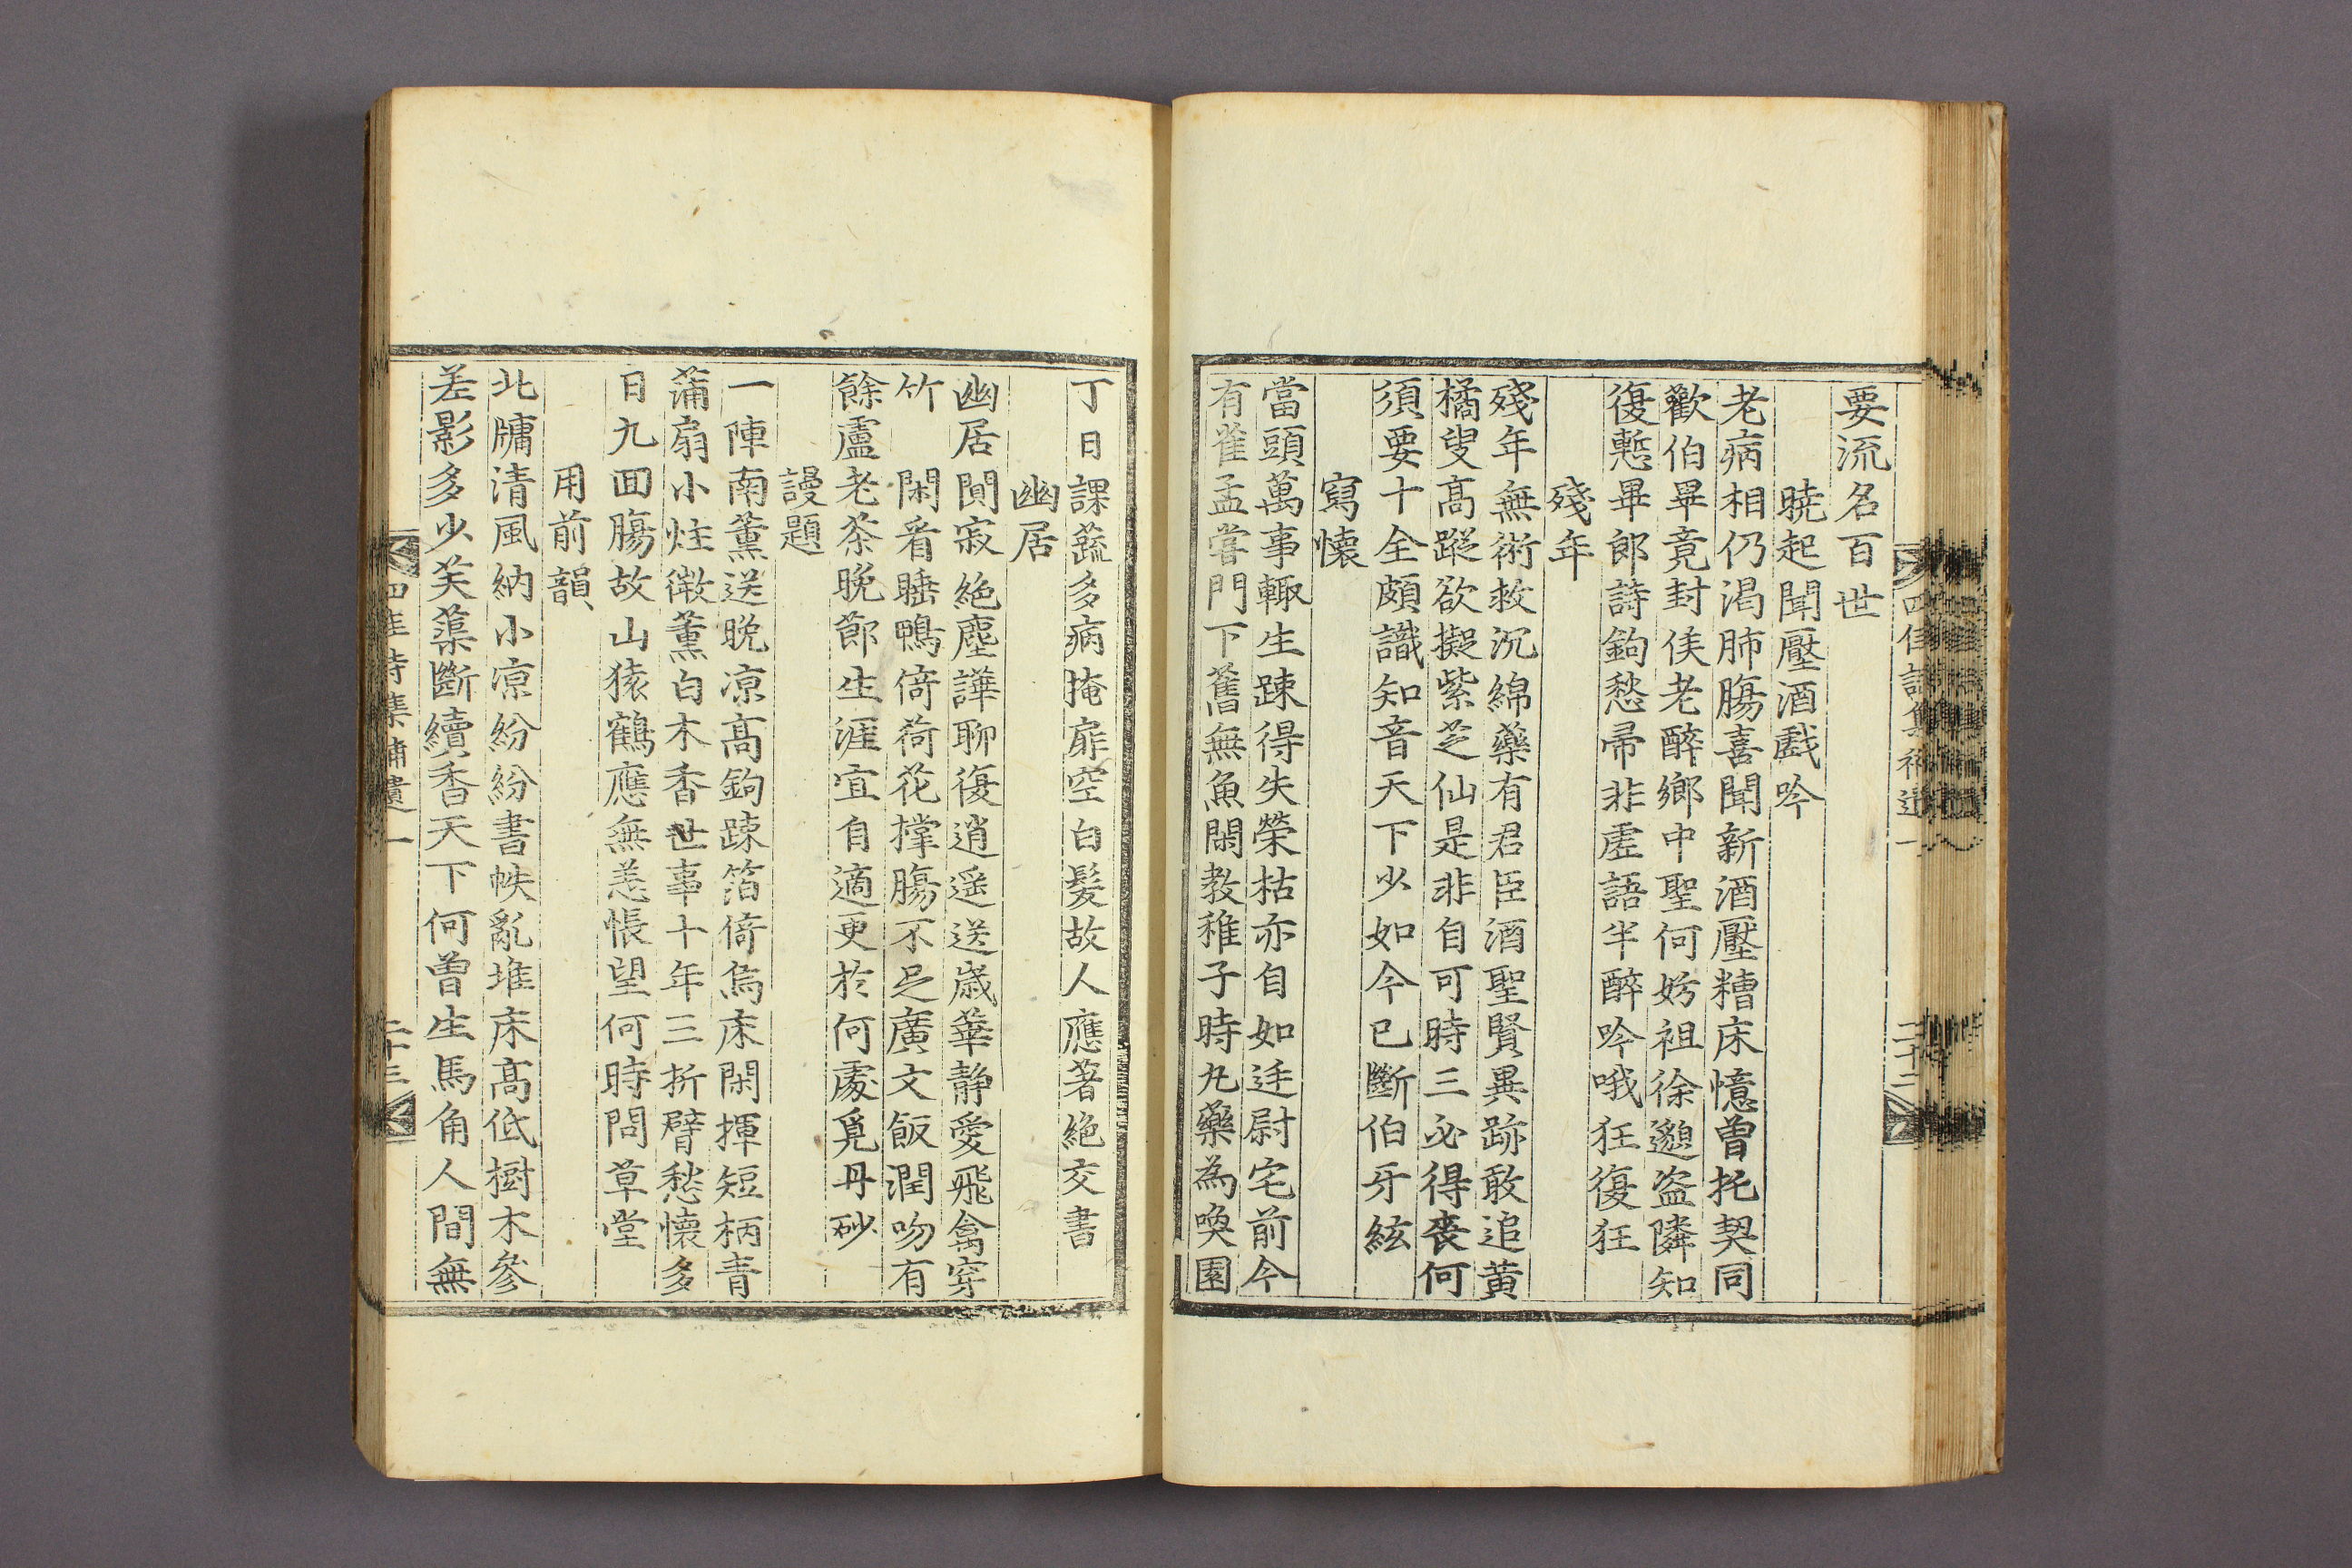 四佳詩集補遺一
二十二
要流名百世
曉起聞壓酒戲吟
老病相仍渴肺腸喜聞新酒壓糟床憶曾托契同
歡伯畢竟封侯老醉鄉中聖何妨徂徐邈盜隣知
復慙畢郎詩鉤愁帚非虛語半醉吟哦狂復狂
殘年
殘年無術救沉綿藥有君臣酒聖賢異跡敢追黃
橘叟高蹤欲擬紫芝仙是非自可時三必得喪何
須要十全頗識知音天下少如今已斷伯牙絃
寫懷
當頭萬事輙生踈得失榮枯亦自如廷尉宅前今
有雀孟嘗門下舊無魚閑教稚子時九藥為喚園
丁日課蔬多病掩扉空白髮故人應著絶交書
幽居
幽居閴寂絶塵譁聊復逍遥送歲華静愛飛禽穿
竹閑看睡鴨倚荷花撑膓不足廣文飯潤吻有
餘盧老茶晚節生涯宜自適更於何處覓丹砂
謾題
一陣南薰送晚凉高鉤踈箔倚烏床閑揮短柄青
蒲扇小炷微薰白木香世事十年三折臂愁懷多
日九回膓故山猿鶴應無恙悵望何時問草堂
用前韻
北牗清風納小凉紛紛書帙亂堆床高低樹木參
差影多少芙蕖斷續香天下何曾生馬角人間無
四佳詩集補遺一
二十三